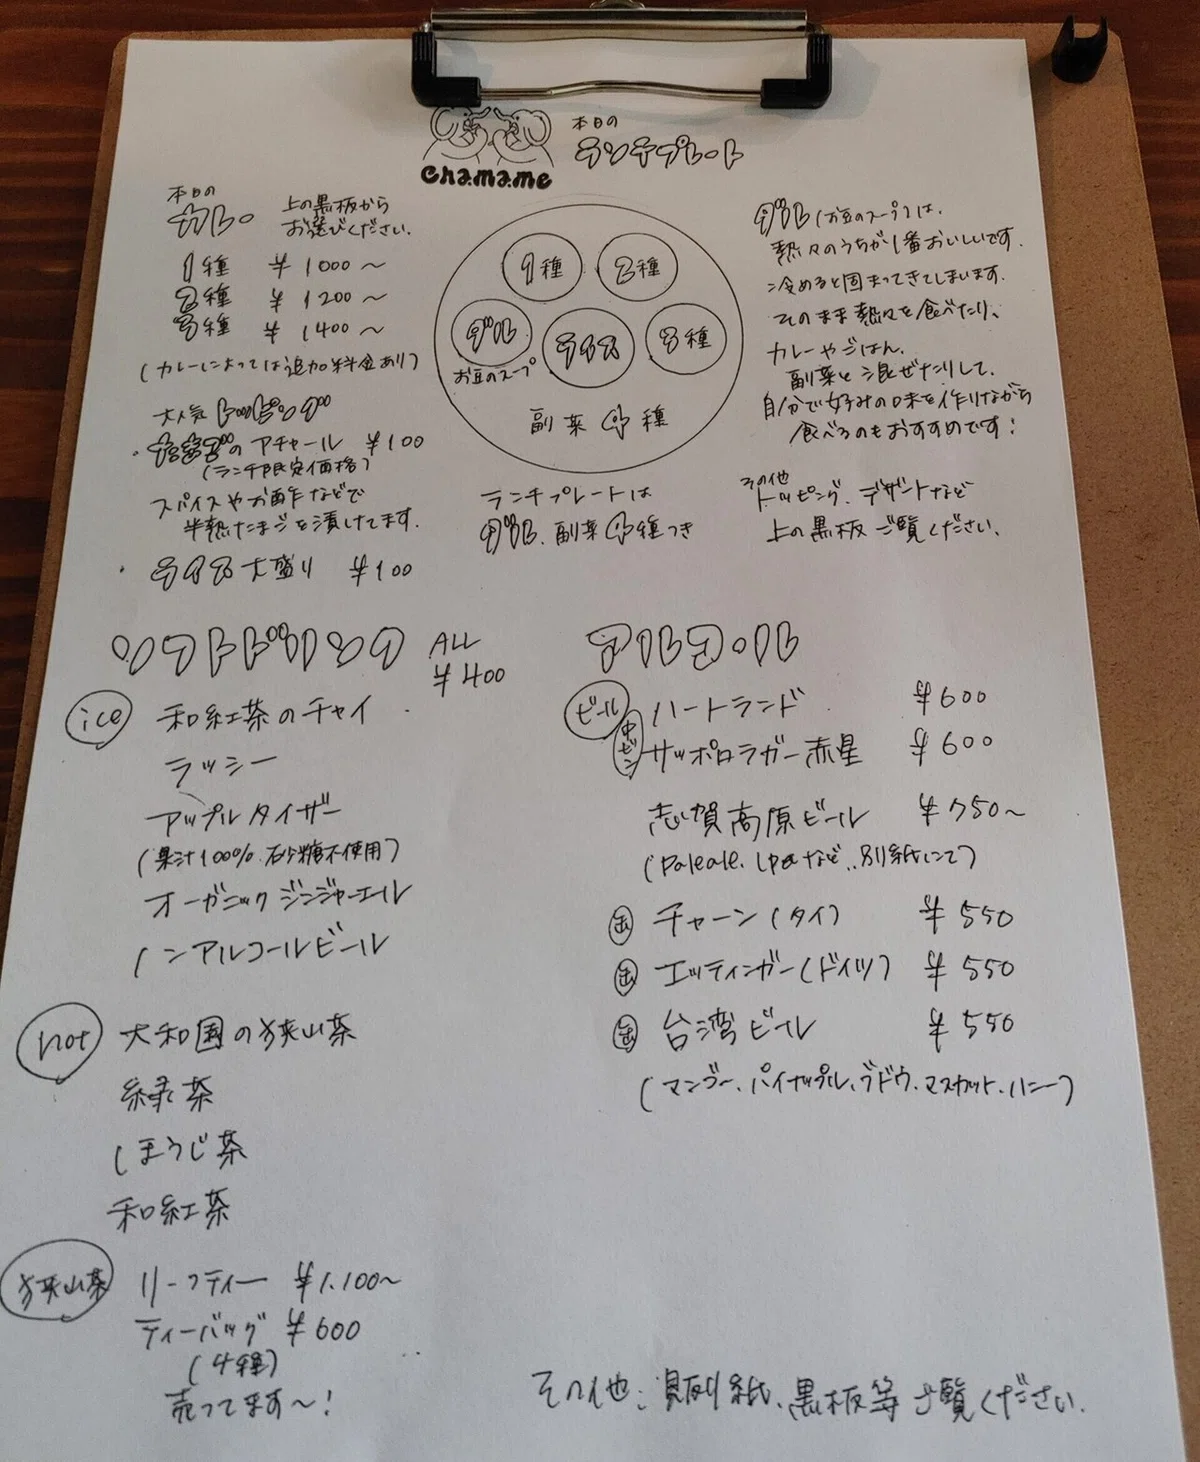 chamame
本日の
ランチプレート
本日の
カレー
上の黒板から
お選びください。
1種 ¥1000〜
2種 ¥1200〜
3種 ¥1400〜
(カレーによっては追加料金あり)
大人気トッピング
・たまごのアチャール ¥100
(ランチ限定価格)
スパイスやお酢などで
半熟たまごを漬けてます。
・ライス大盛り ¥100
1種
2種
ダル
お豆のスープ
ライス
3種
副菜4種
ランチプレートは
ダル、副菜4種つき
ダル(お豆のスープ)は、
熱々のうちが1番おいしいです。
冷めると固まってきてしまいます。
そのまま熱々を食べたり、
カレーやごはん、
副菜と混ぜたりして、
自分で好みの味を作りながら
食べるのもおすすめです!
その他
トッピング、デザートなど
上の黒板ご覧ください。
ソフトドリンク ALL
¥400
ice 和紅茶のチャイ
ラッシー
アップルタイザー
(果汁100%. 砂糖不使用)
オーガニックジンジャーエール
ノンアルコールビール
hot 大和園の狭山茶
緑茶
ほうじ茶
和紅茶
狭山茶 リーフティー ¥1.100〜
ティーバッグ ¥600
(4種)
売ってます〜!
アルコール
ビール
中ビン
ハートランド ¥600
サッポロラガー赤星 ¥600
志賀高原ビール ¥750〜
(paleale. Ipaなど..別紙にて)
缶 チャーン(タイ) ¥550
缶 エッティンガー(ドイツ) ¥550
缶 台湾ビール ¥550
(マンゴー、パイナップル、ブドウ、マスカット、ハニー)
その他:別紙、黒板等ご覧ください.